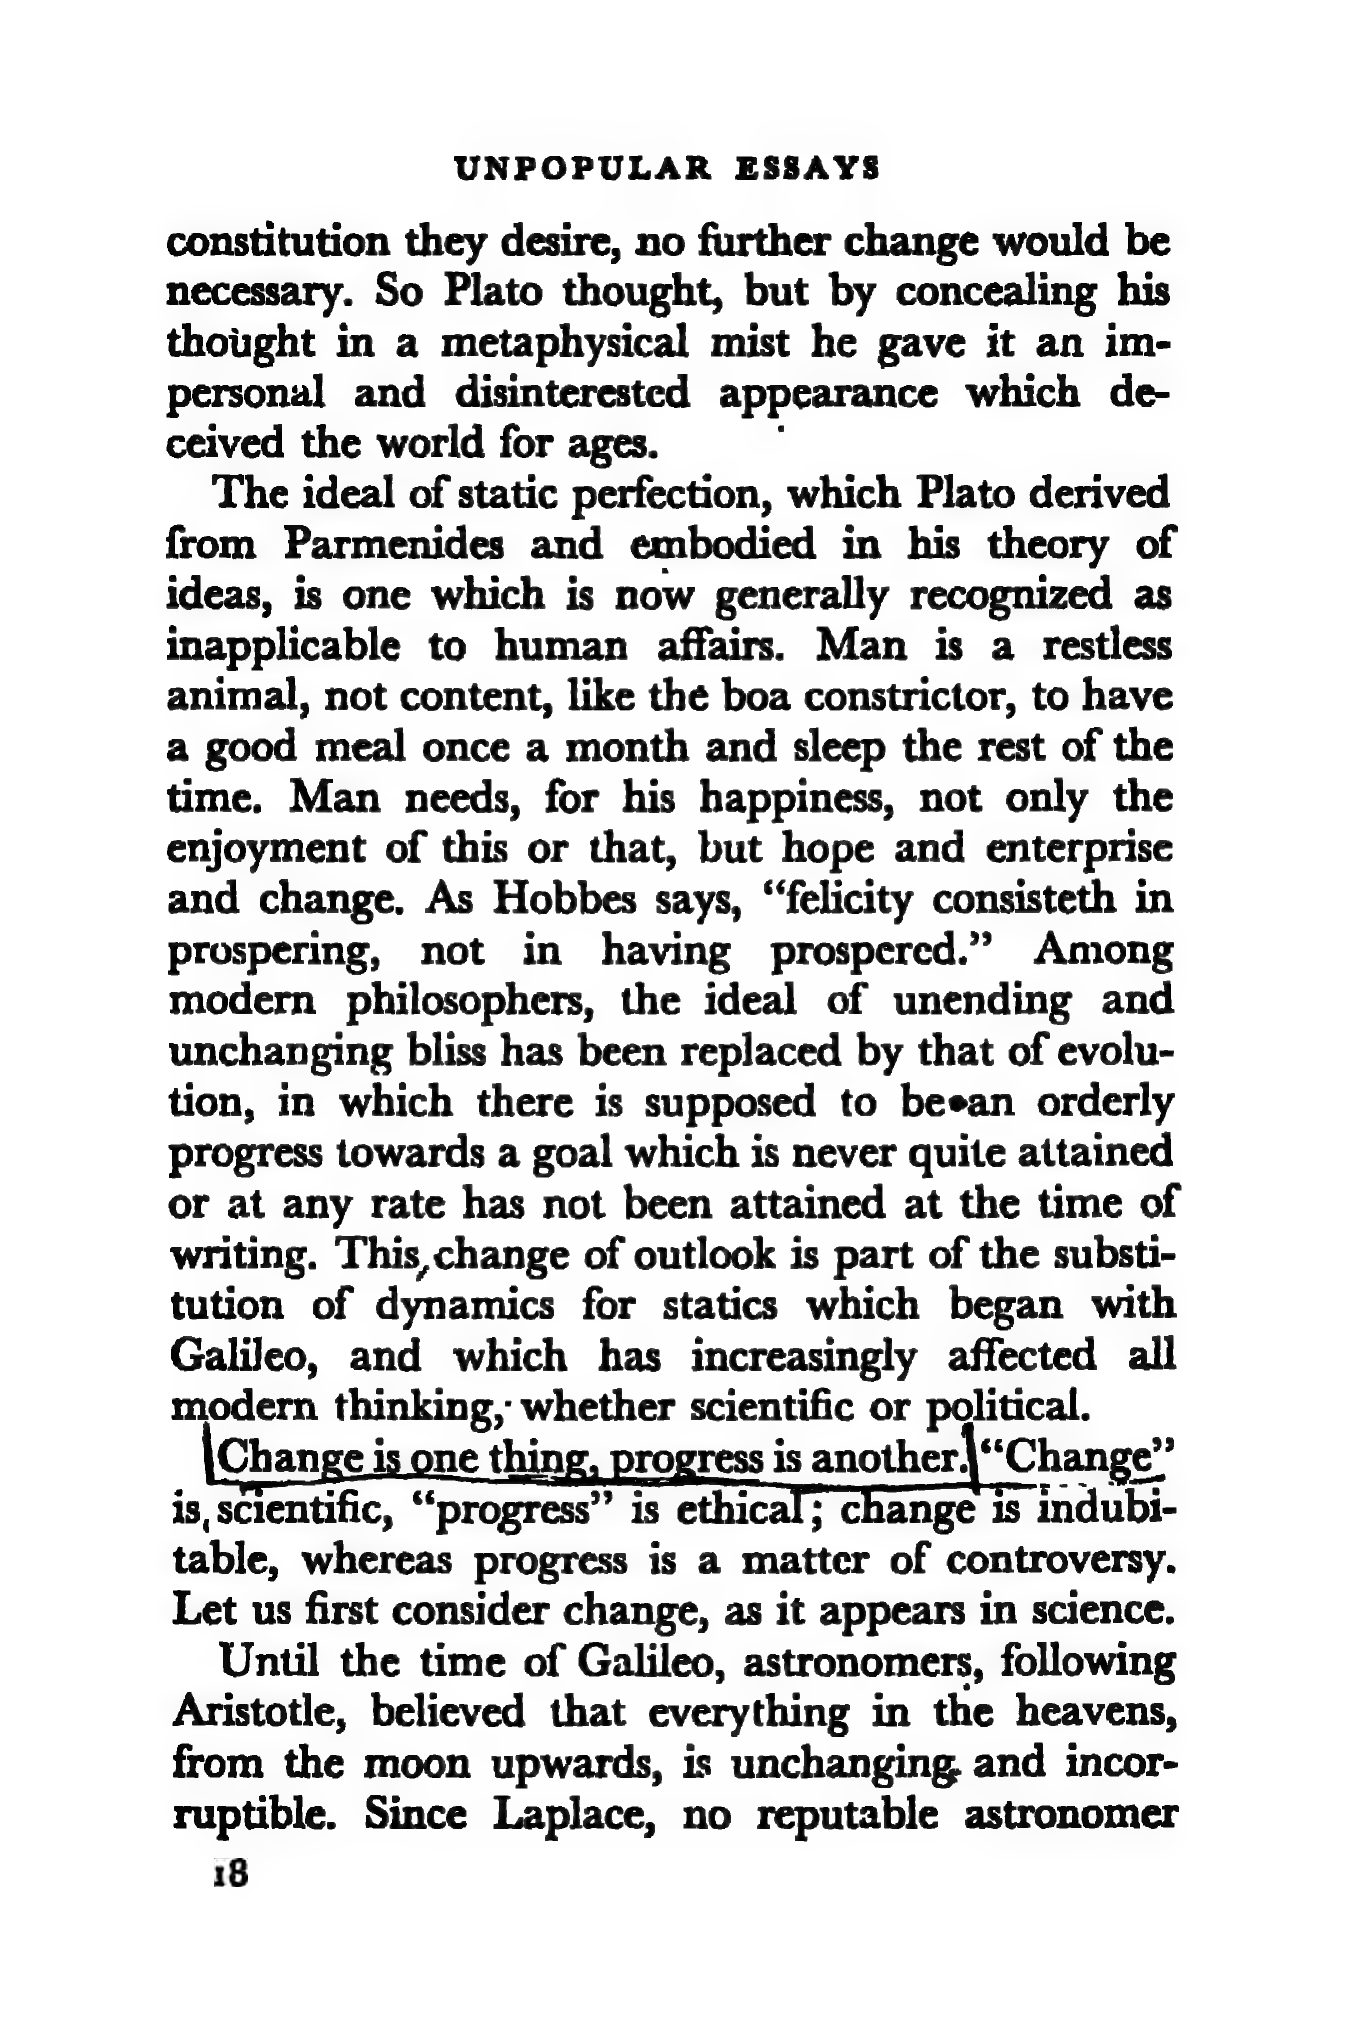 UNPOPULAR ESSAYS
constitution they desire, no further change would be
necessary. So Plato thought, but by concealing his
thought in a metaphysical mist he gave it an im-
personal and disinterested appearance which de-
ceived the world for ages.
The ideal of static perfection, which Plato derived
from Parmenides and embodied in his theory of
ideas, is one which is now generally recognized as
inapplicable to human affairs. Man is a restless
animal, not content, like the boa constrictor, to have
a good meal once a month and sleep the rest of the
time. Man needs, for his happiness, not only the
enjoyment of this or that, but hope and enterprise
and change. As Hobbes says, “felicity consisteth in
prospering, not in having prospered.” Among
modern philosophers, the ideal of unending and
unchanging bliss has been replaced by that of evolu-
tion, in which there is supposed to be an orderly
progress towards a goal which is never quite attained
or at any rate has not been attained at the time of
writing. This change of outlook is part of the substi-
tution of dynamics for statics which began with
Galileo, and which has increasingly affected all
modern thinking, whether scientific or political.
Change is one thing, progress is another. “Change”
is scientific, “progress” is ethical; change is indubi-
table, whereas progress is a matter of controversy.
Let us first consider change, as it appears in science.
Until the time of Galileo, astronomers, following
Aristotle, believed that everything in the heavens,
from the moon upwards, is unchanging and incor-
ruptible. Since Laplace, no reputable astronomer
18